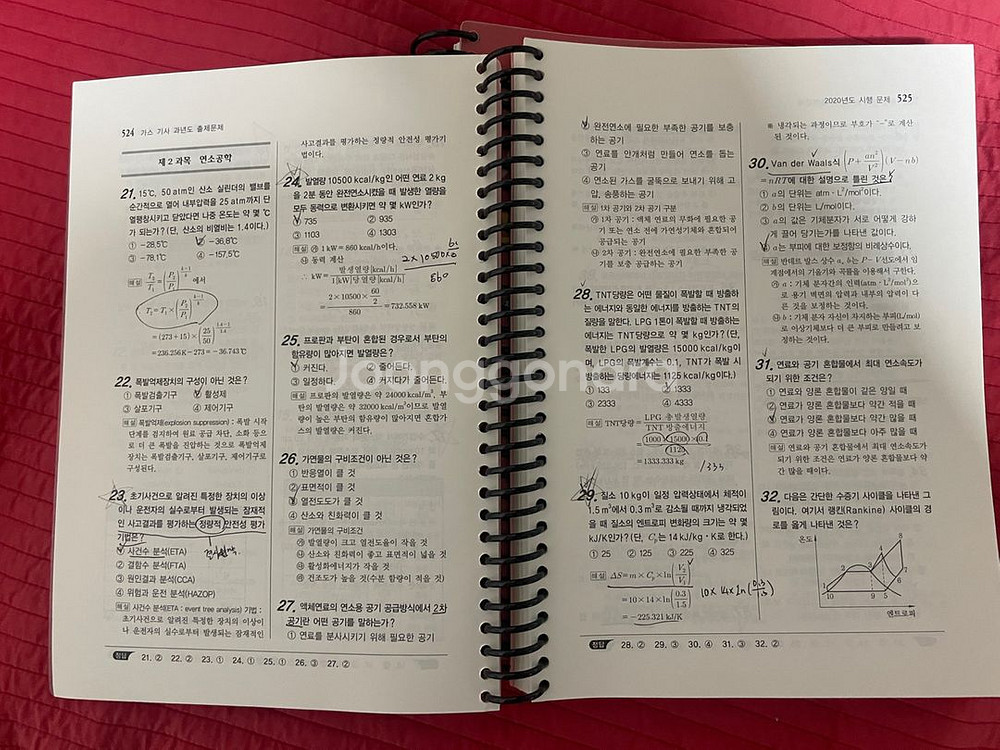 524 가스 기사 과년도 출제문제
제 2 과목 연소공학
21. 15℃, 50 atm인 산소 실린더의 밸브를
순간적으로 열어 내부압력을 25 atm까지 단
열팽창시키고 닫았다면 나중 온도는 약 몇 ℃
가 되는가? (단, 산소의 비열비는 1.4이다.)
① -28.5℃ ② -36.8℃
③ -78.1℃ ④ -157.5℃
해설 T₂/T₁ = (P₂/P₁)^((k-1)/k) 에서
T₂ = T₁ × (P₂/P₁)^((k-1)/k)
= (273+15) × (25/50)^((1.4-1)/1.4)
= 236.256 K - 273 = -36.743℃
22. 폭발억제장치의 구성이 아닌 것은?
① 폭발검출기구 ② 활성제
③ 살포기구 ④ 제어기구
해설 폭발억제(explosion suppression) : 폭발 시작
단계를 검지하여 원료 공급 차단, 소화 등으
로 더 큰 폭발을 진압하는 것으로 폭발억제
장치는 폭발검출기구, 살포기구, 제어기구로
구성된다.
23. 초기사건으로 알려진 특정한 장치의 이상
이나 운전자의 실수로부터 발생되는 잠재적
인 사고결과를 평가하는 정량적 안전성 평가
기법은?
① 사건수 분석(ETA)
② 결함수 분석(FTA)
③ 원인결과 분석(CCA)
④ 위험과 운전 분석(HAZOP)
해설 사건수 분석(ETA : event tree analysis) 기법 :
초기사건으로 알려진 특정한 장치의 이상이
나 운전자의 실수로부터 발생되는 잠재적인
사고결과를 평가하는 정량적 안전성 평가기
법이다.
24. 발열량 10500 kcal/kg인 어떤 연료 2 kg
을 2분 동안 완전연소시켰을 때 발생한 열량을
모두 동력으로 변환시키면 약 몇 kW인가?
① 735 ② 935
③ 1103 ④ 1303
해설 ㉮ 1 kW = 860 kcal/h이다.
㉯ 동력 계산
∴ kW = 발생열량[kcal/h] / 1[kW]당열량[kcal/h]
= 2×10500×60/2 / 860 = 732.558 kW
2×10500×60/2
860
25. 프로판과 부탄이 혼합된 경우로서 부탄의
함유량이 많아지면 발열량은?
① 커진다. ② 줄어든다.
③ 일정하다. ④ 커지다가 줄어든다.
해설 프로판의 발열량은 약 24000 kcal/m³, 부
탄의 발열량은 약 32000 kcal/m³이므로 발열
량이 높은 부탄의 함유량이 많아지면 혼합가
스의 발열량은 커진다.
26. 가연물의 구비조건이 아닌 것은?
① 반응열이 클 것
② 표면적이 클 것
③ 열전도도가 클 것
④ 산소와 친화력이 클 것
해설 가연물의 구비조건
㉮ 발열량이 크고 열전도율이 작을 것
㉯ 산소와 친화력이 좋고 표면적이 넓을 것
㉰ 활성화에너지가 작을 것
㉱ 건조도가 높을 것(수분 함량이 적을 것)
27. 액체연료의 연소용 공기 공급방식에서 2차
공기란 어떤 공기를 말하는가?
① 연료를 분사시키기 위해 필요한 공기
정답 21. ② 22. ② 23. ① 24. ① 25. ① 26. ③ 27. ②
2020년도 시행 문제 525
② 완전연소에 필요한 부족한 공기를 보충
하는 공기
③ 연료를 안개처럼 만들어 연소를 돕는
공기
④ 연소된 가스를 굴뚝으로 보내기 위해 고
압, 송풍하는 공기
해설 1차 공기와 2차 공기 구분
㉮ 1차 공기 : 액체 연료의 무화에 필요한 공
기 또는 연소 전에 가연성기체와 혼합되어
공급되는 공기
㉯ 2차 공기 : 완전연소에 필요한 부족한 공
기를 보충 공급하는 공기
28. TNT당량은 어떤 물질이 폭발할 때 방출하
는 에너지와 동일한 에너지를 방출하는 TNT의
질량을 말한다. LPG 1톤이 폭발할 때 방출하는
에너지는 TNT당량으로 약 몇 kg인가? (단,
폭발한 LPG의 발열량은 15000 kcal/kg이
며, LPG의 폭발계수는 0.1, TNT가 폭발 시
방출하는 당량에너지는 1125 kcal/kg이다.)
① 133 ② 1333
③ 2333 ④ 4333
해설 TNT당량 = LPG 총 발생열량 / TNT 방출에너지
= 1000×15000×0.1 / 1125
= 1333.333 kg
1333
29. 질소 10 kg이 일정 압력상태에서 체적이
1.5 m³에서 0.3 m³로 감소될 때까지 냉각되었
을 때 질소의 엔트로피 변화량의 크기는 약 몇
kJ/K인가? (단, Cp는 14 kJ/kg·K로 한다.)
① 25 ② 125 ③ 225 ④ 325
해설 ΔS = m × Cp × ln(V₂/V₁)
= 10×14×ln(0.3/1.5)
= -225.321 kJ/K
10×14×ln(0.3/1.5)
※ 냉각되는 과정이므로 부호가 “-”로 계산
된 것이다.
30. Van der Waals식 (P + an²/V²)(V-nb)
= nRT에 대한 설명으로 틀린 것은?
① a의 단위는 atm·L²/mol²이다.
② b의 단위는 L/mol이다.
③ a의 값은 기체분자가 서로 어떻게 강하
게 끌어 당기는가를 나타낸 값이다.
④ a는 부피에 대한 보정항의 비례상수이다.
해설 반데르 발스 상수 a, b는 P-V선도에서 임
계점에서의 기울기와 곡률을 이용해서 구한다.
㉮ a : 기체 분자간의 인력(atm·L²/mol²)으
로 용기 벽면의 압력과 내부의 압력이 다
른 것을 보정하는 것이다.
㉯ b : 기체 분자 자신이 차지하는 부피(L/mol)
로 이상기체보다 더 큰 부피로 만들려고 보
정하는 것이다.
31. 연료와 공기 혼합물에서 최대 연소속도가
되기 위한 조건은?
① 연료와 양론 혼합물이 같은 양일 때
② 연료가 양론 혼합물보다 약간 적을 때
③ 연료가 양론 혼합물보다 약간 많을 때
④ 연료가 양론 혼합물보다 아주 많을 때
해설 연료와 공기 혼합물에서 최대 연소속도가
되기 위한 조건은 연료가 양론 혼합물보다 약
간 많을 때이다.
32. 다음은 간단한 수증기 사이클을 나타낸 그
림이다. 여기서 랭킨(Rankine) 사이클의 경
로를 옳게 나타낸 것은?
온도
1 2 3 4 5 6 7 8 9 10
엔트로피
정답 28. ② 29. ③ 30. ④ 31. ③ 32. ②
Joonggonara